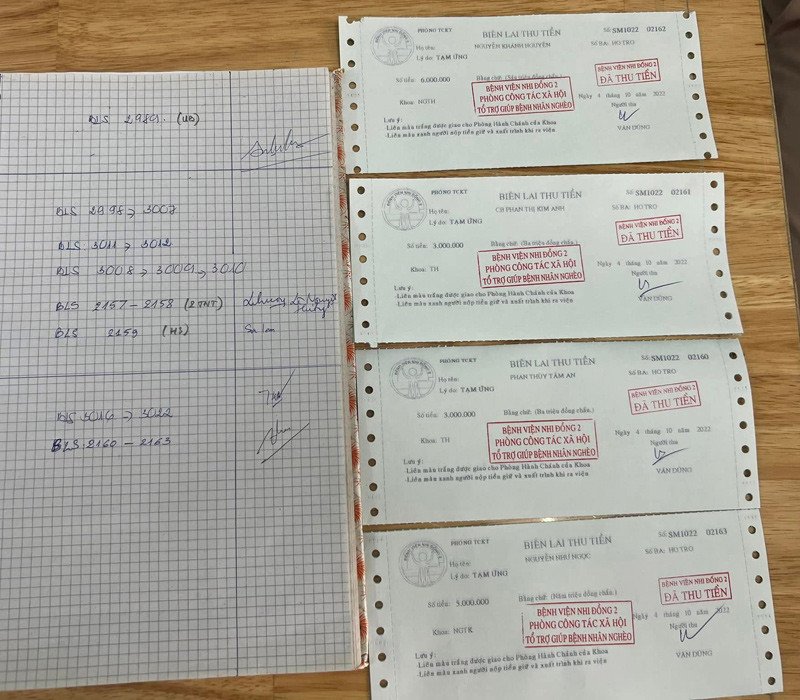 BLS 2989. (UB)
BLS 2998 → 3007
BLS: 3011 → 3012
BLS 3008 → 3009 → 3010
BLS 2157 - 2158 (2TNT)
BLS 2159 (HS)
BLS 3016 → 3022
BLS: 2160 - 2163
PHÒNG TCKT
BIÊN LAI THU TIỀN
Số: SM1022 02162
Họ tên: NGUYỄN KHÁNH NGUYÊN
Số BA: HO TRO
Lý do: TẠM ỨNG
Số tiền: 6.000.000
Bằng chữ: (Sáu triệu đồng chẵn.)
BỆNH VIỆN NHI ĐỒNG 2
ĐÃ THU TIỀN
BỆNH VIỆN NHI ĐỒNG 2
PHÒNG CÔNG TÁC XÃ HỘI
TỔ TRỢ GIÚP BỆNH NHÂN NGHÈO
Khoa: NGTH
Ngày 4 tháng 10 năm 2022
Người thu
Lưu ý:
-Liên màu trắng được giao cho Phòng Hành Chánh của Khoa
-Liên màu xanh người nộp tiền giữ và xuất trình khi ra viện
VĂN DŨNG
PHÒNG TCKT
BIÊN LAI THU TIỀN
Số: SM1022 02161
Họ tên: CB PHAN THỊ KIM ANH
Số BA: HO TRO
Lý do: TẠM ỨNG
Số tiền: 3.000.000
Bằng chữ: (Ba triệu đồng chẵn.)
BỆNH VIỆN NHI ĐỒNG 2
ĐÃ THU TIỀN
BỆNH VIỆN NHI ĐỒNG 2
PHÒNG CÔNG TÁC XÃ HỘI
TỔ TRỢ GIÚP BỆNH NHÂN NGHÈO
Khoa: TH
Ngày 4 tháng 10 năm 2022
Người thu
Lưu ý:
-Liên màu trắng được giao cho Phòng Hành Chánh của Khoa
-Liên màu xanh người nộp tiền giữ và xuất trình khi ra viện
VĂN DŨNG
PHÒNG TCKT
BIÊN LAI THU TIỀN
Số: SM1022 02160
Họ tên: PHAN THÚY TÂM AN
Số BA: HO TRO
Lý do: TẠM ỨNG
Số tiền: 3.000.000
Bằng chữ: (Ba triệu đồng chẵn.)
BỆNH VIỆN NHI ĐỒNG 2
ĐÃ THU TIỀN
BỆNH VIỆN NHI ĐỒNG 2
PHÒNG CÔNG TÁC XÃ HỘI
TỔ TRỢ GIÚP BỆNH NHÂN NGHÈO
Khoa: TH
Ngày 4 tháng 10 năm 2022
Người thu
Lưu ý:
-Liên màu trắng được giao cho Phòng Hành Chánh của Khoa
-Liên màu xanh người nộp tiền giữ và xuất trình khi ra viện
VĂN DŨNG
PHÒNG TCKT
BIÊN LAI THU TIỀN
Số: SM1022 02163
Họ tên: NGUYỄN NHƯ NGỌC
Số BA: HO TRO
Lý do: TẠM ỨNG
Số tiền: 5.000.000
Bằng chữ: (Năm triệu đồng chẵn.)
BỆNH VIỆN NHI ĐỒNG 2
ĐÃ THU TIỀN
BỆNH VIỆN NHI ĐỒNG 2
PHÒNG CÔNG TÁC XÃ HỘI
TỔ TRỢ GIÚP BỆNH NHÂN NGHÈO
Khoa: NGTK
Ngày 4 tháng 10 năm 2022
Người thu
Lưu ý:
-Liên màu trắng được giao cho Phòng Hành Chánh của Khoa
-Liên màu xanh người nộp tiền giữ và xuất trình khi ra viện
VĂN DŨNG